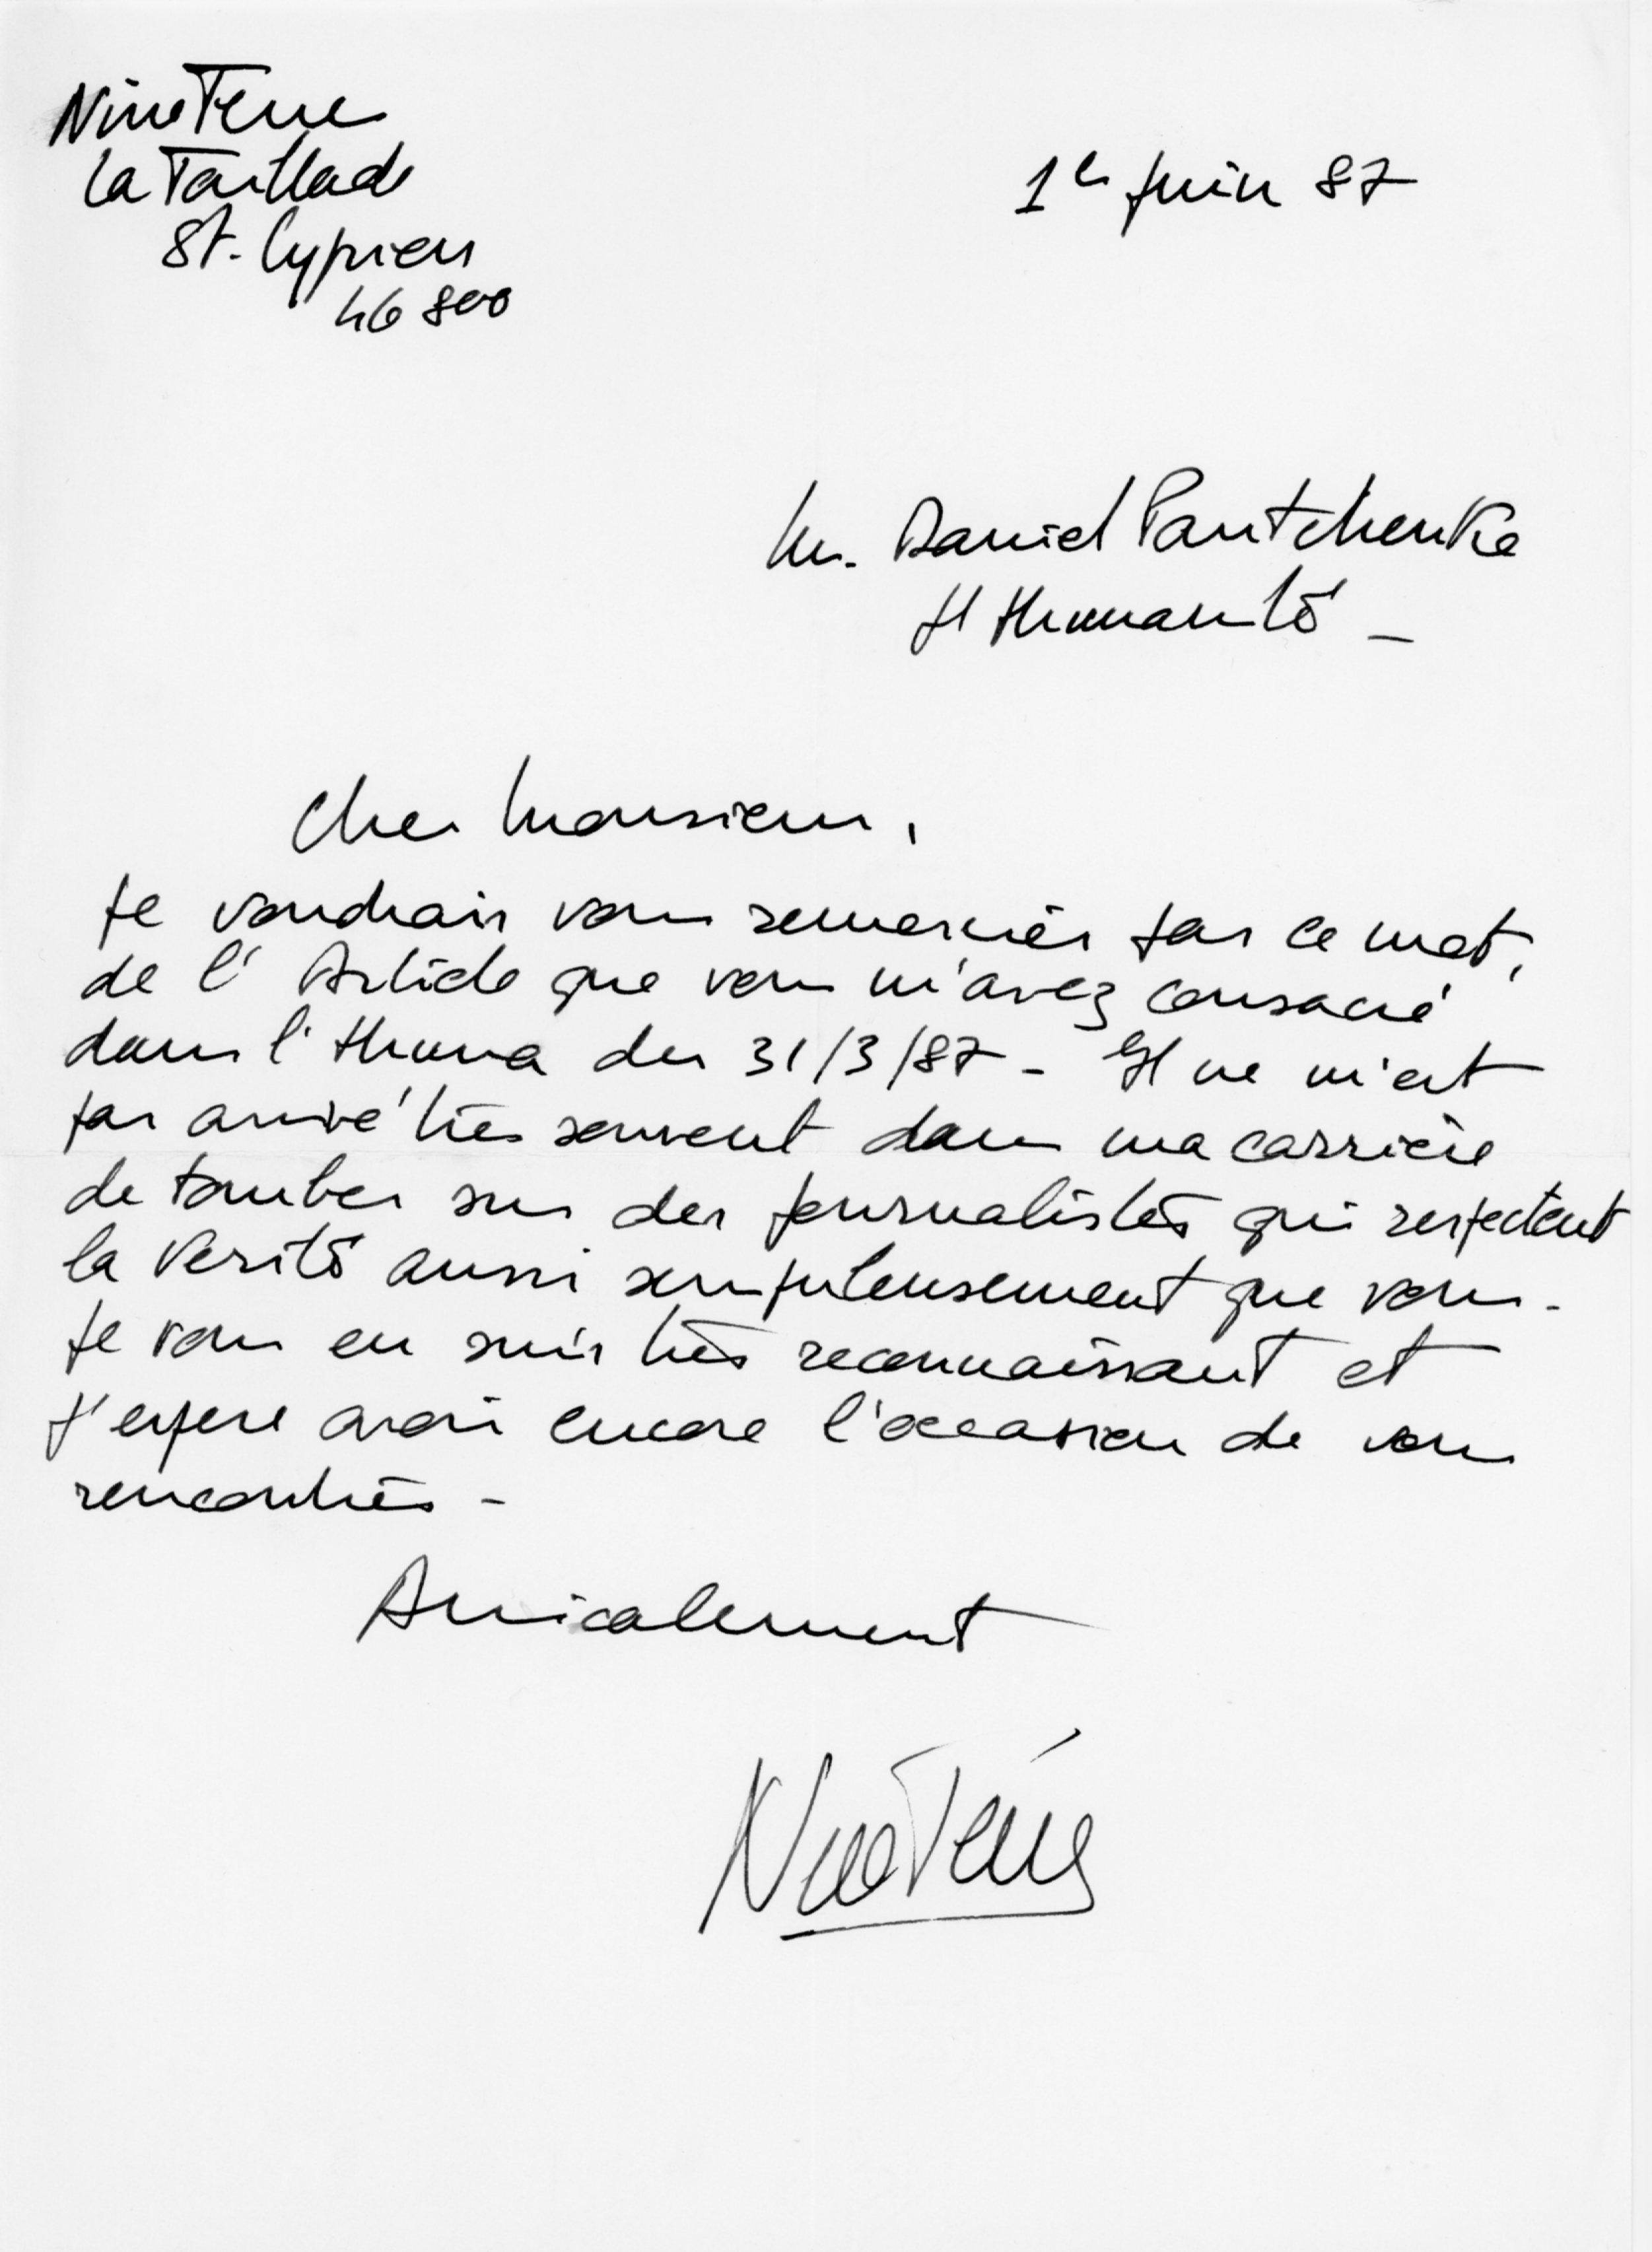 Nino Ferrer
La Taillade
St. Cyprien
46800
1er Juin 87
M. Daniel Pantchenko
L'Humanité -
Cher Monsieur,
Je voudrais vous remercier par ce mot,
de l'Article que vous m'avez consacré
dans l'Huma du 31/3/87 - Il ne m'est
pas arrivé très souvent dans ma carrière
de tomber sur des journalistes qui respectent
la Verité aussi scrupuleusement que vous -
Je vous en suis très reconnaissant et
J'espere avoir encore l'occasion de vous
rencontrer -
Amicalement
Nino Ferrer